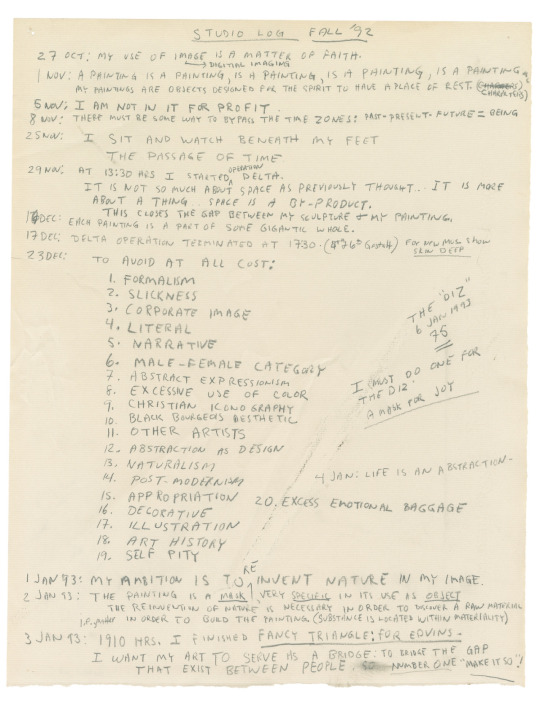 STUDIO LOG FALL '92
27 OCT: MY USE OF IMAGE IS A MATTER OF FAITH.
→ DIGITAL IMAGING
1 NOV: A PAINTING IS A PAINTING, IS A PAINTING, IS A PAINTING, IS A PAINTING
MY PAINTINGS ARE OBJECTS DESIGNED FOR THE SPIRIT TO HAVE A PLACE OF REST.
5 NOV: I AM NOT IN IT FOR PROFIT.
8 NOV: THERE MUST BE SOME WAY TO BYPASS THE TIME ZONES: PAST-PRESENT-FUTURE = BEING
25 NOV: I SIT AND WATCH BENEATH MY FEET
THE PASSAGE OF TIME
29 NOV: AT 13:30 HRS I STARTED OPERATION DELTA.
IT IS NOT SO MUCH ABOUT SPACE AS PREVIOUSLY THOUGHT.. IT IS MORE
ABOUT A THING.. SPACE IS A BY-PRODUCT.
THIS CLOSES THE GAP BETWEEN MY SCULPTURE + MY PAINTING.
DEC: EACH PAINTING IS A PART OF SOME GIGANTIC WHOLE.
17 DEC: DELTA OPERATION TERMINATED AT 1730. FOR NEW MUS. SHOW
SKIN DEEP
23 DEC: TO AVOID AT ALL COST:
1. FORMALISM
2. SLICKNESS
3. CORPORATE IMAGE
4. LITERAL
5. NARRATIVE
6. MALE-FEMALE CATEGORY
7. ABSTRACT EXPRESSIONISM
8. EXCESSIVE USE OF COLOR
9. CHRISTIAN ICONOGRAPHY
10. BLACK BOURGEOIS AESTHETIC
11. OTHER ARTISTS
12. ABSTRACTION AS DESIGN
13. NATURALISM
14. POST-MODERNISM
15. APPROPRIATION
16. DECORATIVE
17. ILLUSTRATION
18. ART HISTORY
19. SELF PITY
20. EXCESS EMOTIONAL BAGGAGE
THE "DIZ"
6 JAN 1993
75
I MUST DO ONE FOR
THE DIZ.
A MASK FOR JOY
4 JAN: LIFE IS AN ABSTRACTION-
1 JAN 93: MY AMBITION IS TO RE INVENT NATURE IN MY IMAGE.
2 JAN 93: THE PAINTING IS A MASK, VERY SPECIFIC IN ITS USE AS OBJECT
THE REINVENTION OF NATURE IS NECESSARY IN ORDER TO DISCOVER A RAW MATERIAL
IN ORDER TO BUILD THE PAINTING. (SUBSTANCE IS LOCATED WITHIN MATERIALITY)
3 JAN 93: 1910 HRS. I FINISHED FANCY TRIANGLE; FOR EDVINS-
I WANT MY ART TO SERVE AS A BRIDGE: TO BRIDGE THE GAP
THAT EXIST BETWEEN PEOPLE. SO NUMBER ONE "MAKE IT SO"!